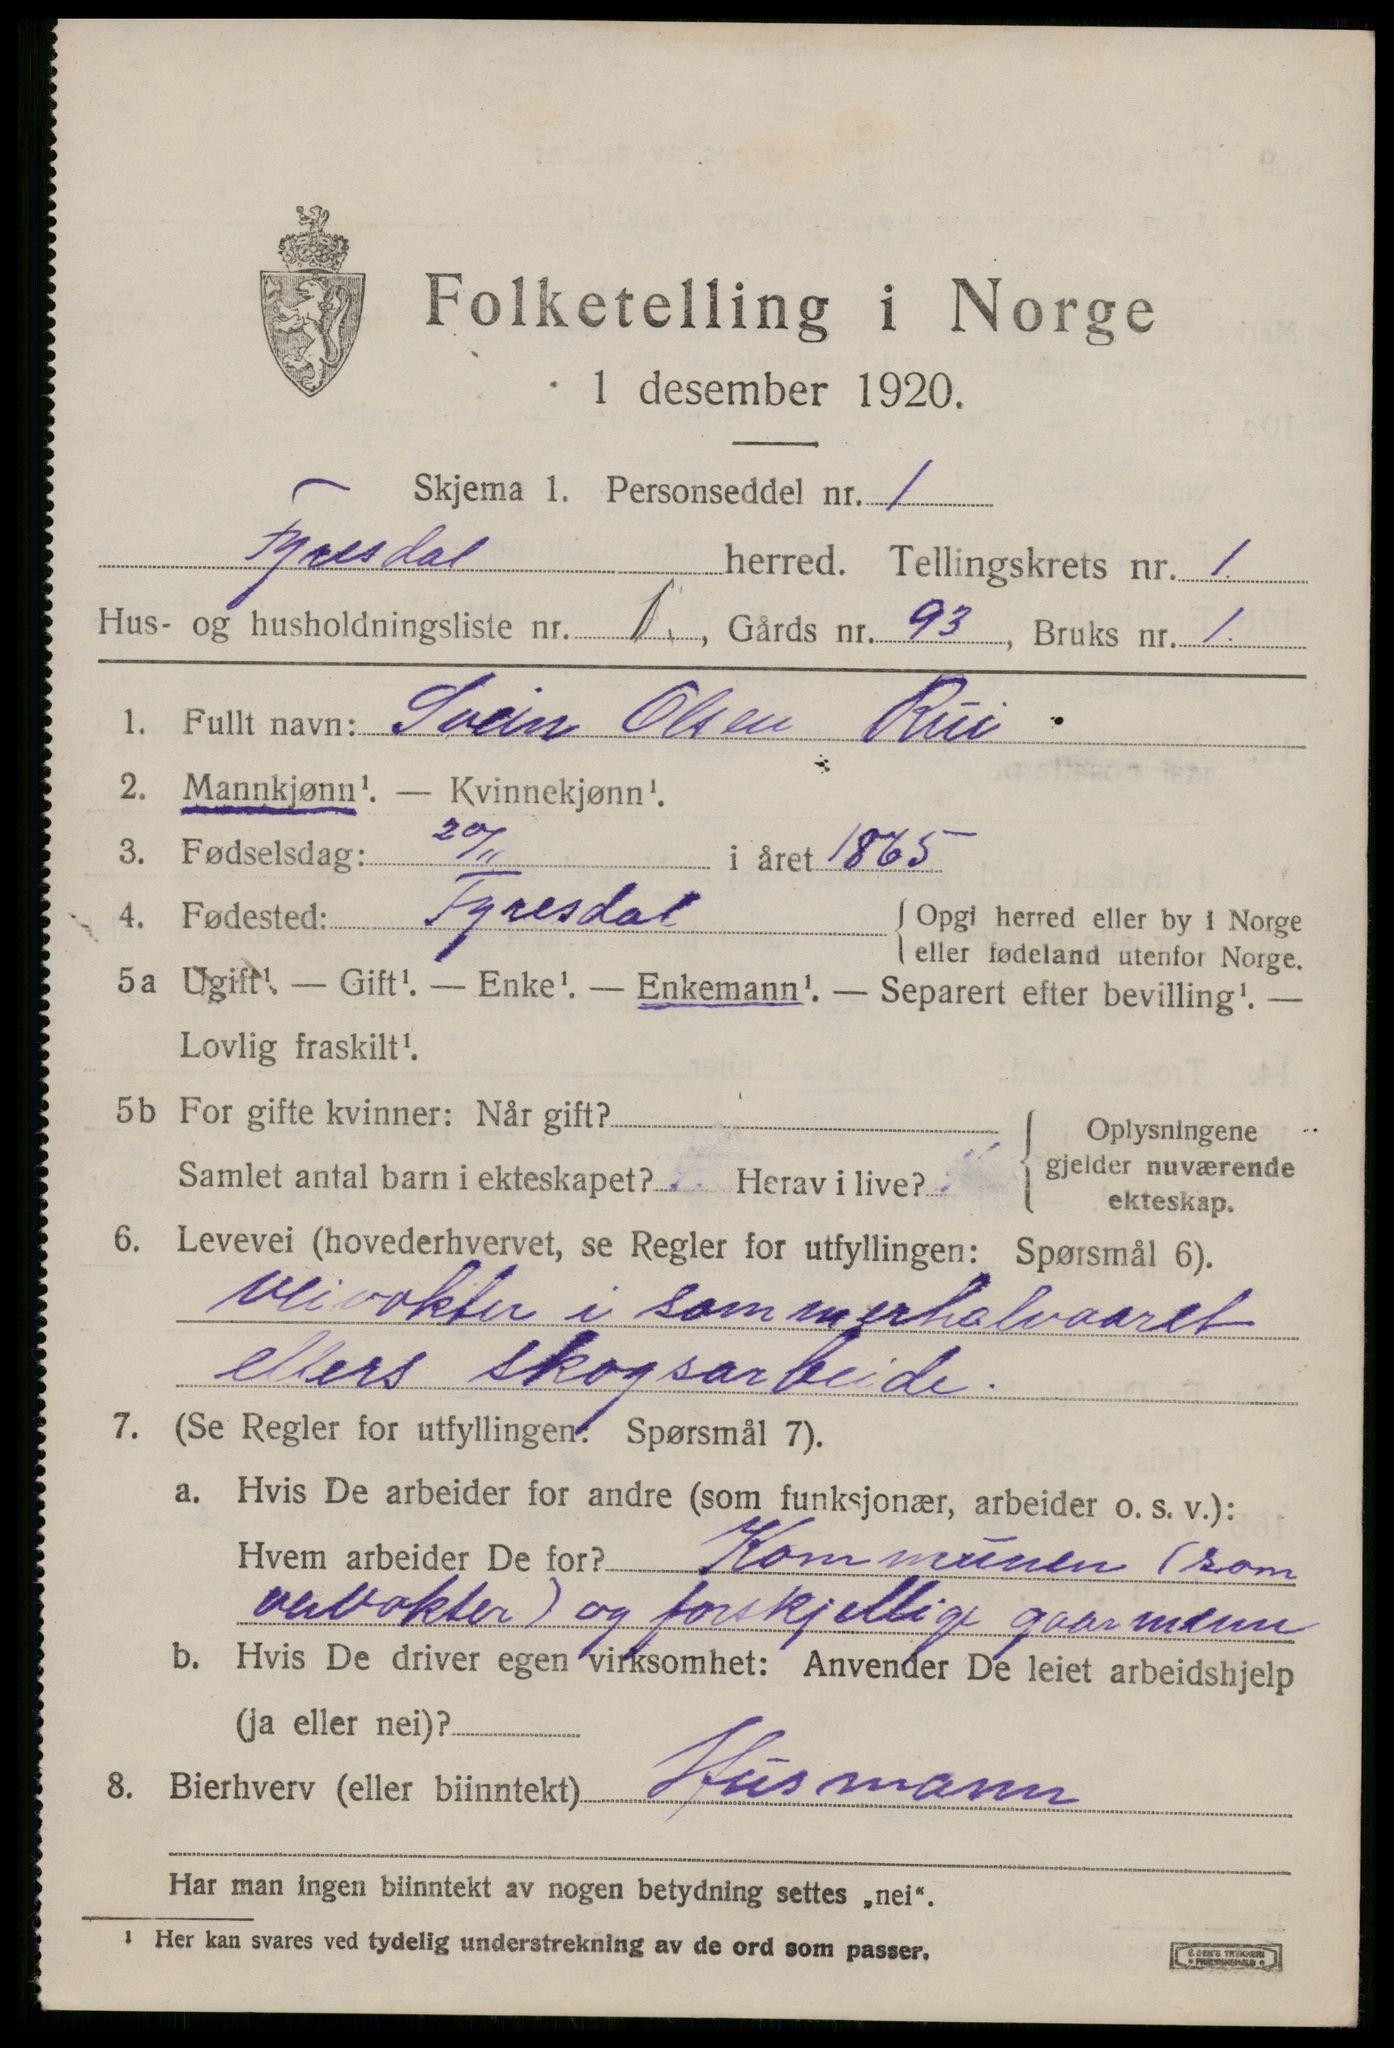 Folketelling i Norge
1 desember 1920.
Skjema 1. Personseddel nr. 1
Fyresdal herred. Tellingskrets nr. 1.
Hus- og husholdningsliste nr. 1., Gårds nr. 93, Bruks nr. 1.
1. Fullt navn: Svein Olsen Rui
2. Mannkjønn¹. — Kvinnekjønn¹.
3. Fødselsdag: 20/11 i året 1865
4. Fødested: Fyresdal { Opgi herred eller by i Norge
eller fødeland utenfor Norge.
5a Ugift¹. — Gift¹. — Enke¹. — Enkemann¹. — Separert efter bevilling¹. —
Lovlig fraskilt¹.
5b For gifte kvinner: Når gift?
Samlet antal barn i ekteskapet? Herav i live? { Oplysningene
gjelder nuværende
ekteskap.
6. Levevei (hovederhvervet, se Regler for utfyllingen: Spørsmål 6).
veivokter i sommerhalvaaret
ellers skogsarbeide.
7. (Se Regler for utfyllingen: Spørsmål 7).
a. Hvis De arbeider for andre (som funksjonær, arbeider o. s. v.):
Hvem arbeider De for? Kommunen (som
veivokter) og forskjellige gaarmenn
b. Hvis De driver egen virksomhet: Anvender De leiet arbeidshjelp
(ja eller nei)?
8. Bierhverv (eller biinntekt) Husmann
Har man ingen biinntekt av nogen betydning settes „nei“.
¹ Her kan svares ved tydelig understrekning av de ord som passer.